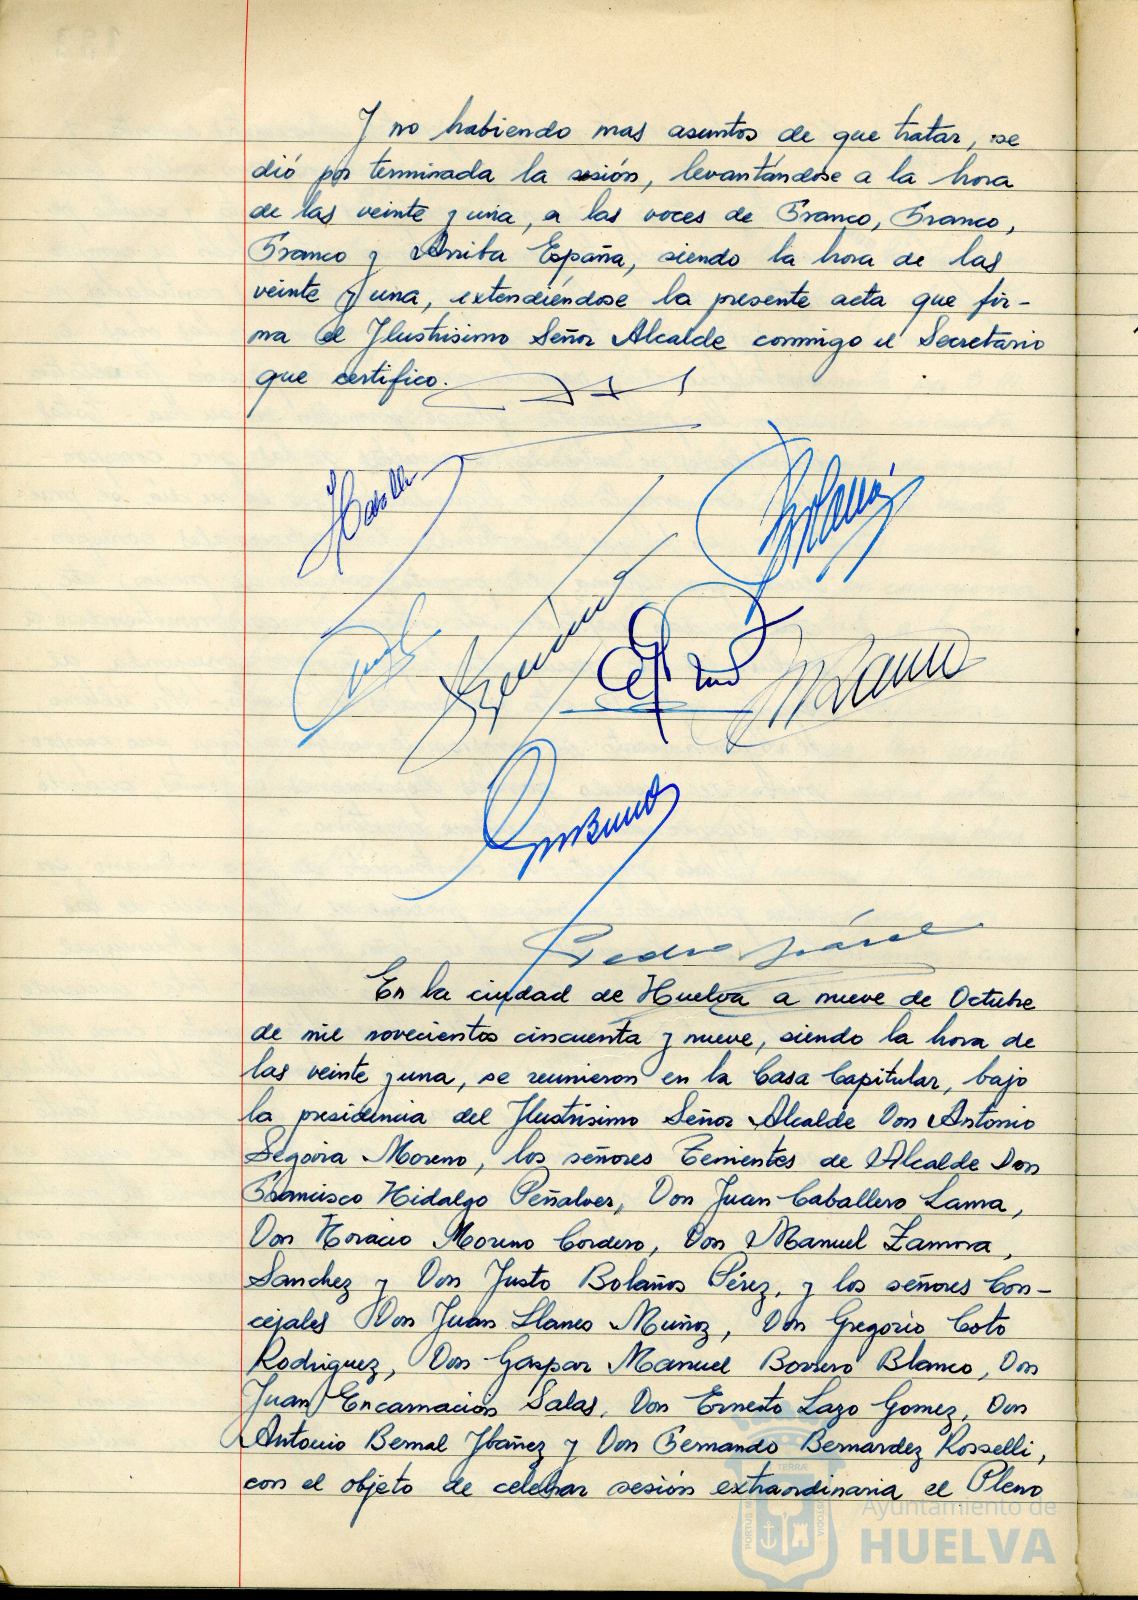 Y no habiendo mas asuntos de que tratar, se
dió por terminada la sesión, levantándose a la hora
de las veinte y una, a las voces de Franco, Franco,
Franco y Arriba España, siendo la hora de las
veinte y una, extendiéndose la presente acta que fir-
ma el Ilustrisimo Señor Alcalde conmigo el Secretario
que certifico.
Pedro
En la ciudad de Huelva a nueve de Octubre
de mil novecientos cincuenta y nueve, siendo la hora de
las veinte y una, se reunieron en la Casa Capitular, bajo
la presidencia del Ilustrisimo Señor Alcalde Don Antonio
Segovia Moreno, los señores Tenientes de Alcalde Don
Francisco Hidalgo Peñalver, Don Juan Caballero Lama,
Don Horacio Moreno Cordero, Don Manuel Zamora,
Sanchez y Don Justo Bolaños Pérez, y los señores Con-
cejales Don Juan Llanes Muñoz, Don Gregorio Coto
Rodriguez, Don Gaspar Manuel Borrero Blanco, Don
Juan Encarnación Salas, Don Ernesto Lazo Gomez, Don
Antonio Bernal Ibáñez y Don Fernando Bernardez Rosselli,
con el objeto de celebrar sesión extraordinaria el Pleno
Ayuntamiento de
HUELVA